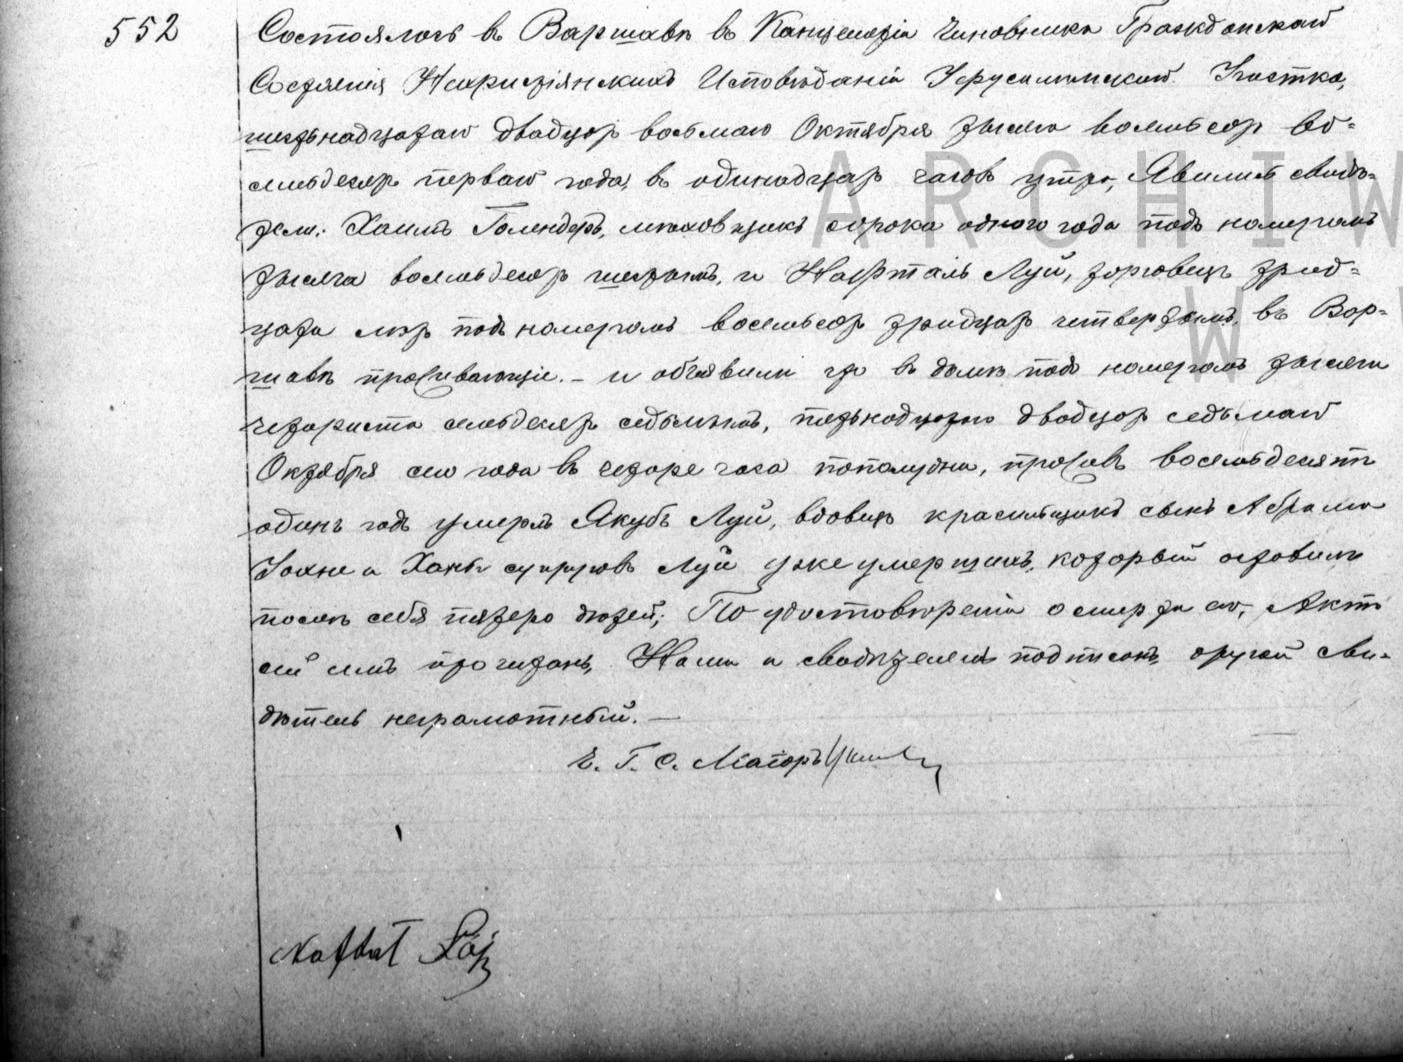 552
Состоялось въ Варшавѣ въ Канцеляріи Чиновника Гражданскаго
Состоянія Нехристіянскихъ Исповѣданій Іерусалимскаго Участка,
шестьнадцатаго двадцать восьмаго Октября тысяча восемьсотъ во-
семьдесятъ перваго года, въ одинадцать часовъ утра, Явились свидѣ-
тели: Хаимъ Голендеръ, мѣховщикъ сорока одного года подъ номеромъ
тысяча восемьдесятъ шестымъ, и Нафталь Луй, торговецъ трид-
цати лѣтъ подъ номеромъ восемьсотъ тридцать четвертымъ, въ Вар-
шавѣ проживающіе. – и объявили что въ домѣ подъ номеромъ тысяча
четыриста семьдесятъ седьмымъ, пятьнадцатаго двадцать седьмаго
Октября сего года въ четыре часа пополудни, проживъ восемьдесятъ
одинъ годъ умеръ Якубъ Луй, вдовецъ красильщикъ сынъ Абрама
и Ханы супруговъ Луй уже умершихъ, который оставилъ
послѣ себя пятеро дѣтей; По удостовѣреніи о смерти его, Актъ
сей имъ прочитанъ, Нами и свидѣтелемъ подписанъ, другой сви-
дѣтель неграмотный. –
Ч. Г. С. Маіоръ
Naftal Luj